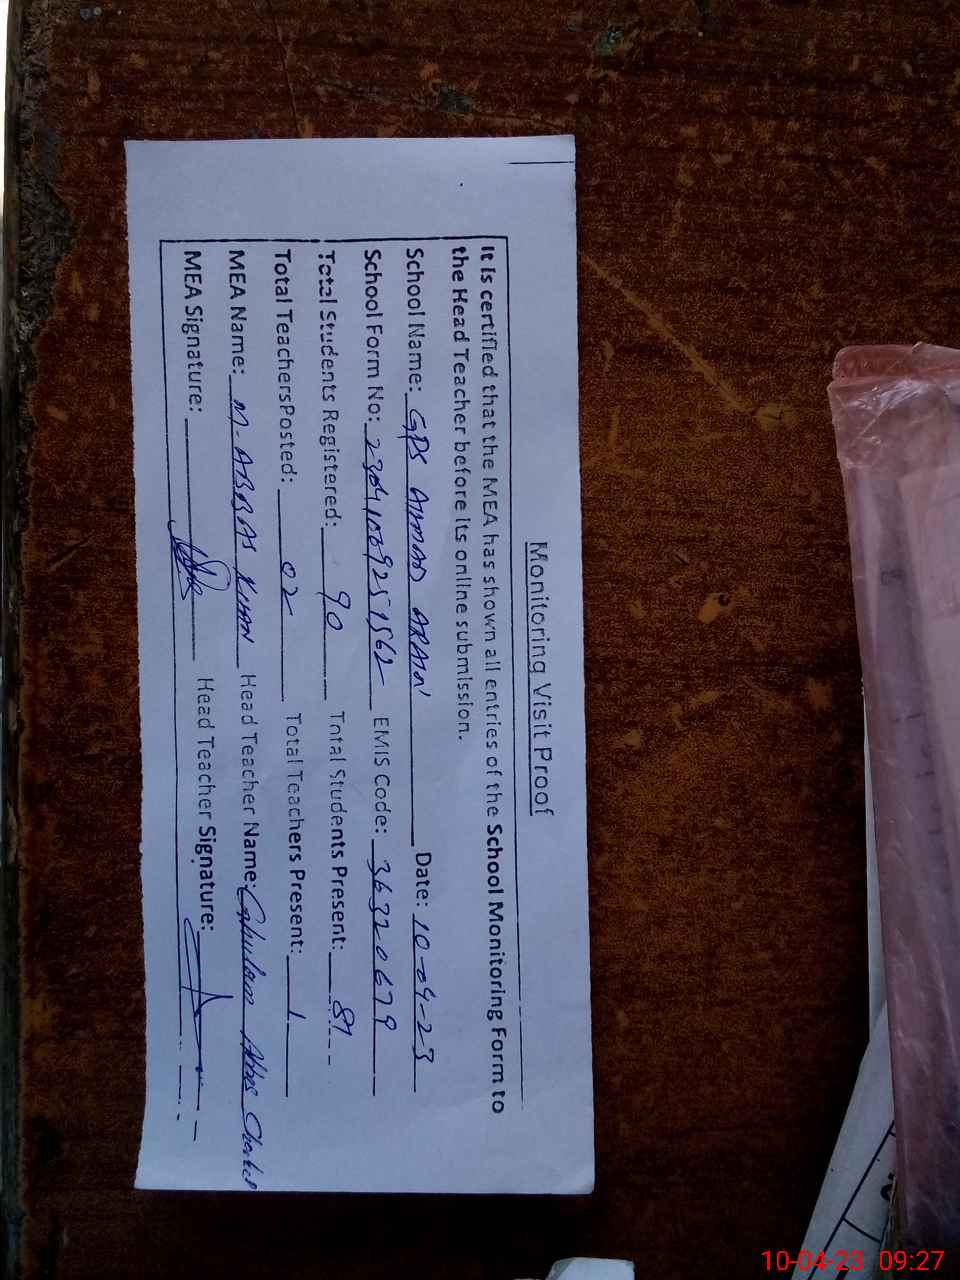 Monitoring Visit Proof
It is certified that the MEA has shown all entries of the School Monitoring Form to
the Head Teacher before its online submission.
School Name: GPS AMAD ARAIN Date: 10-04-23
School Form No: EMIS Code: 36320679
Total Students Registered: 90 Total Students Present: 81
Total TeachersPosted: 02 Total Teachers Present: 1
MEA Name: M-ABBAS KHAN Head Teacher Name: Ghulam Abbas
MEA Signature: Head Teacher Signature:
10-04-23 09:27